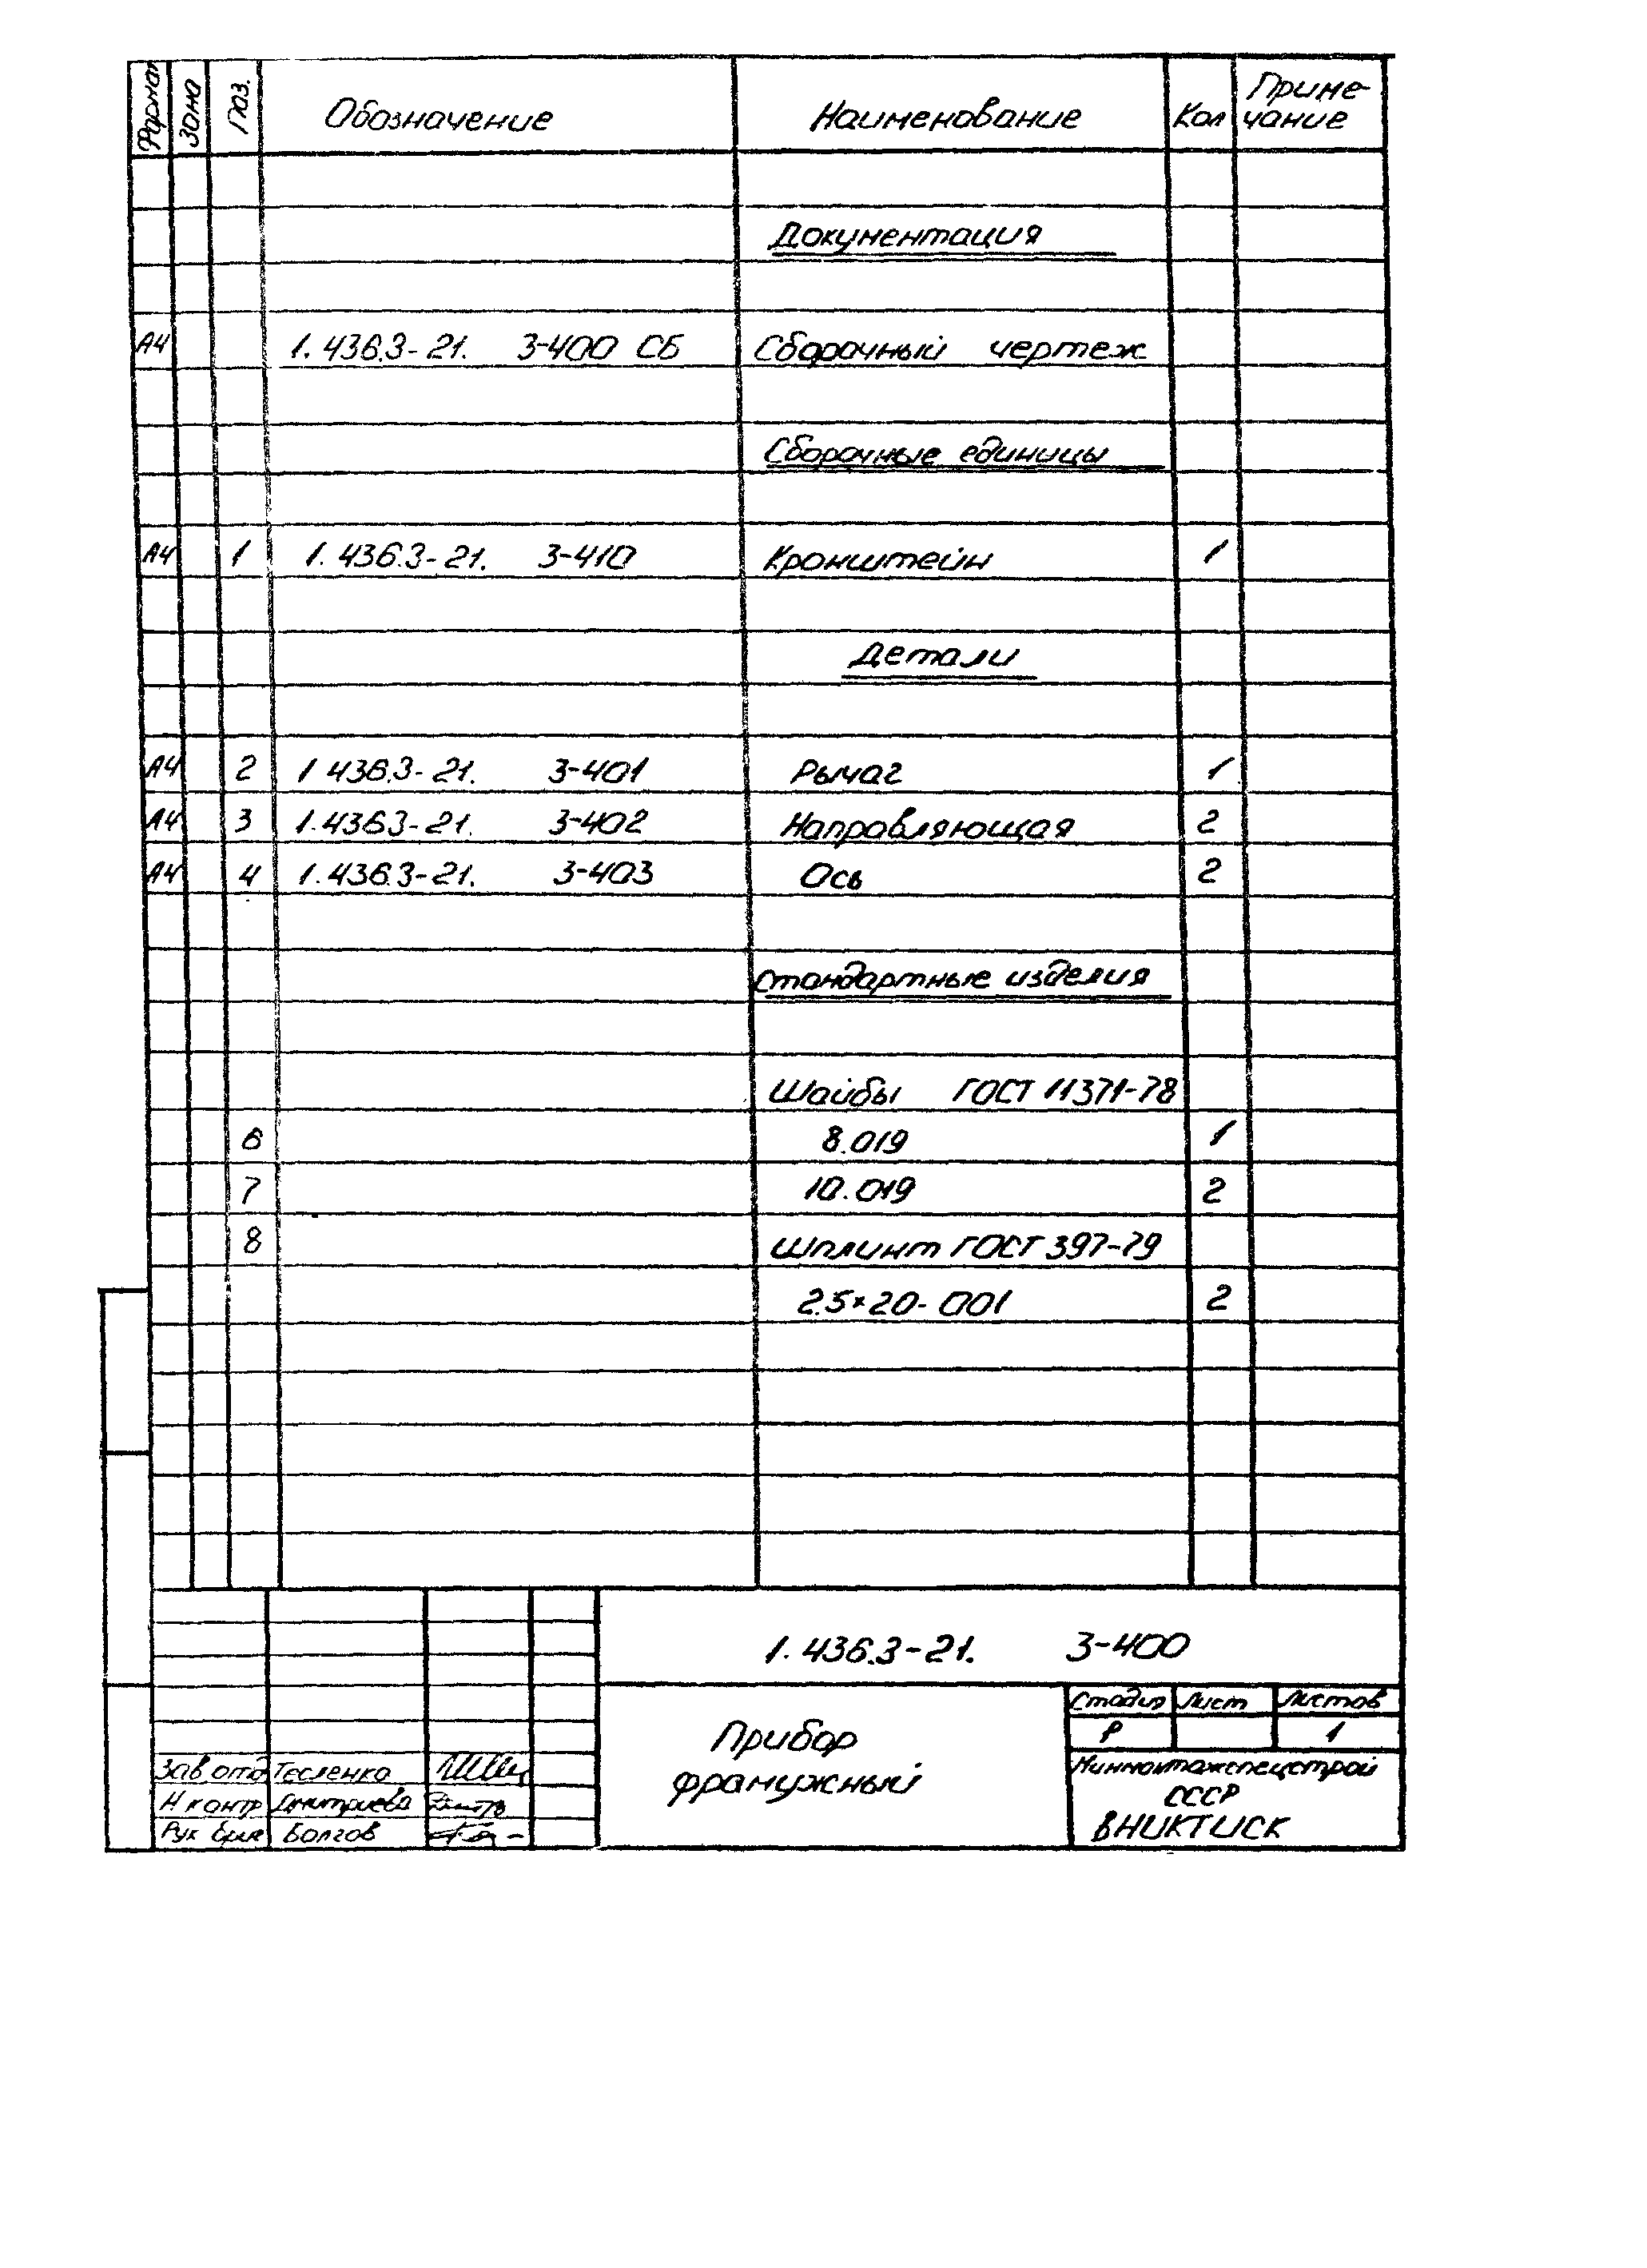 Формат Зона Поз. Обозначение Наименование Кол Приме-чание
Документация
А4 1.436.3-21. 3-400 СБ Сборочный чертеж
Сборочные единицы
А4 1 1.436.3-21. 3-410 Кронштейн 1
Детали
А4 2 1 436.3-21. 3-401 Рычаг 1
А4 3 1.436.3-21. 3-402 Направляющая 2
А4 4 1.436.3-21. 3-403 Ось 2
Стандартные изделия
Шайбы ГОСТ 11371-78
6 8.019 1
7 10.019 2
8 Шплинт ГОСТ 397-79
2.5×20-001 2
1.436.3-21. 3-400
Прибор
фрамужный
Стадия Лист Листов
Р 1
Минмонтажспецстрой
СССР
ВНИКТИСК
Зав отд Тесленко
Н контр Дмитриева
Рук бриг Болгов